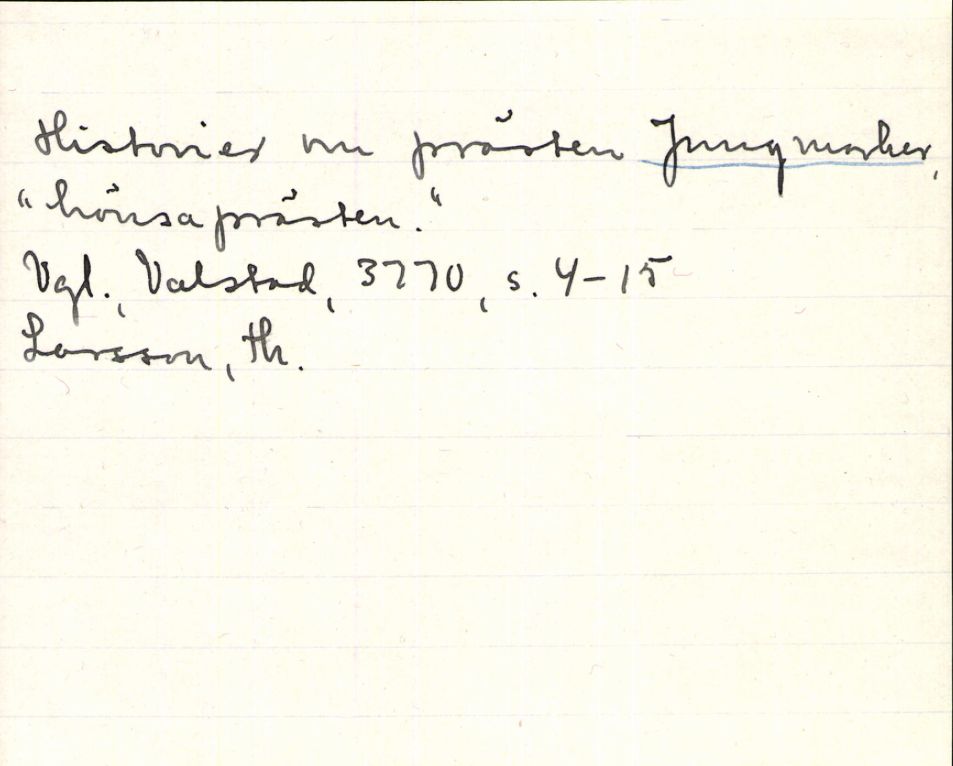 Historier om prästen Jungmarker,
"hönsaprästen."
Vgl., Valstad, 3770, s. 4-15
Larsson, th.